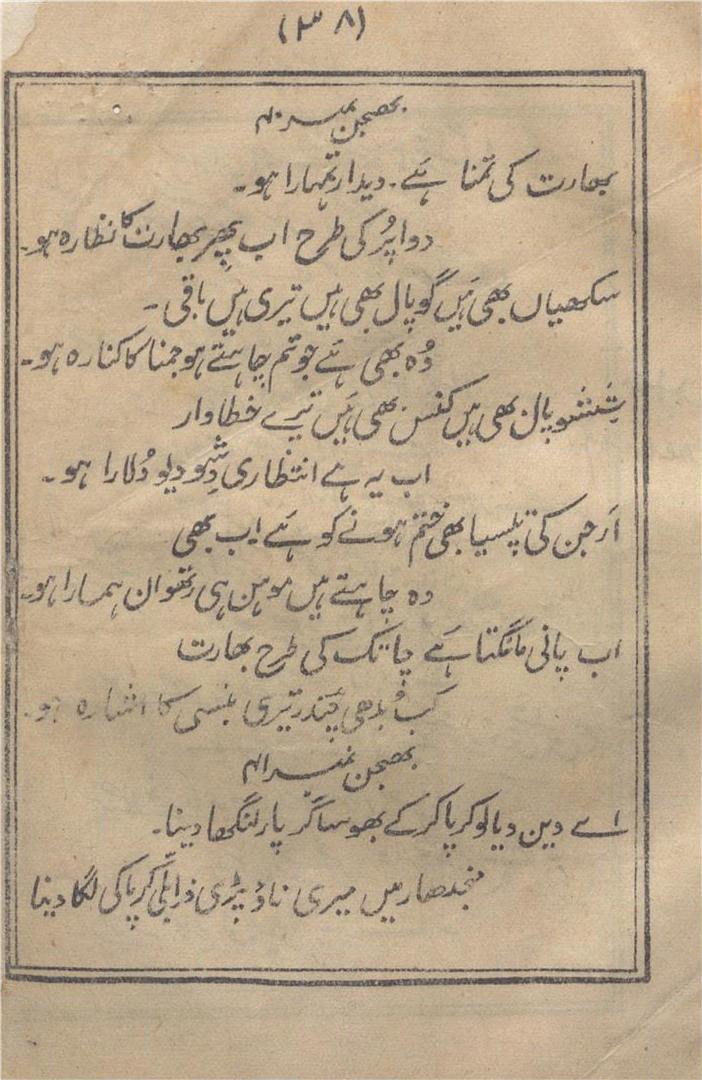 (۳۸)
بھجن نمبر ۴۰
بھارت کی تمنا ہَے۔ دیدار تمہارا ہو۔
دواپُر کی طرح اب پھِر بھارت کا نظارہ ہو۔
سکھیاں بھی ہَیں گوپال بھی ہیں تیری ہیں باقی ۔
وُہ بھی ہَے جو تم چاہتے ہو جمنا کا کنارہ ہو۔
شِشُوپال بھی ہیں کنس بھی ہَیں تیرے خطاوار
اب یہ ہے انتظاری دُلارا ہو ۔
اَرجن کی تپسیا بھی ختم ہونے کو ہَے اب بھی
وہ چاہتے ہیں موہن ہی رتھوان ہمارا ہو۔
اب پانی مانگتا ہَے چاتک کی طرح بھارت
کب بُدھی چندر تیری بنسی کا اشارہ ہو۔
بھجن نمبر ۴۱
اے دین دیالو کرپا کر کے بھوساگر پار لنگھا دینا۔
منجدھار میں میری ناؤ پڑی ذرا بلّی کرپا کی لگا دینا